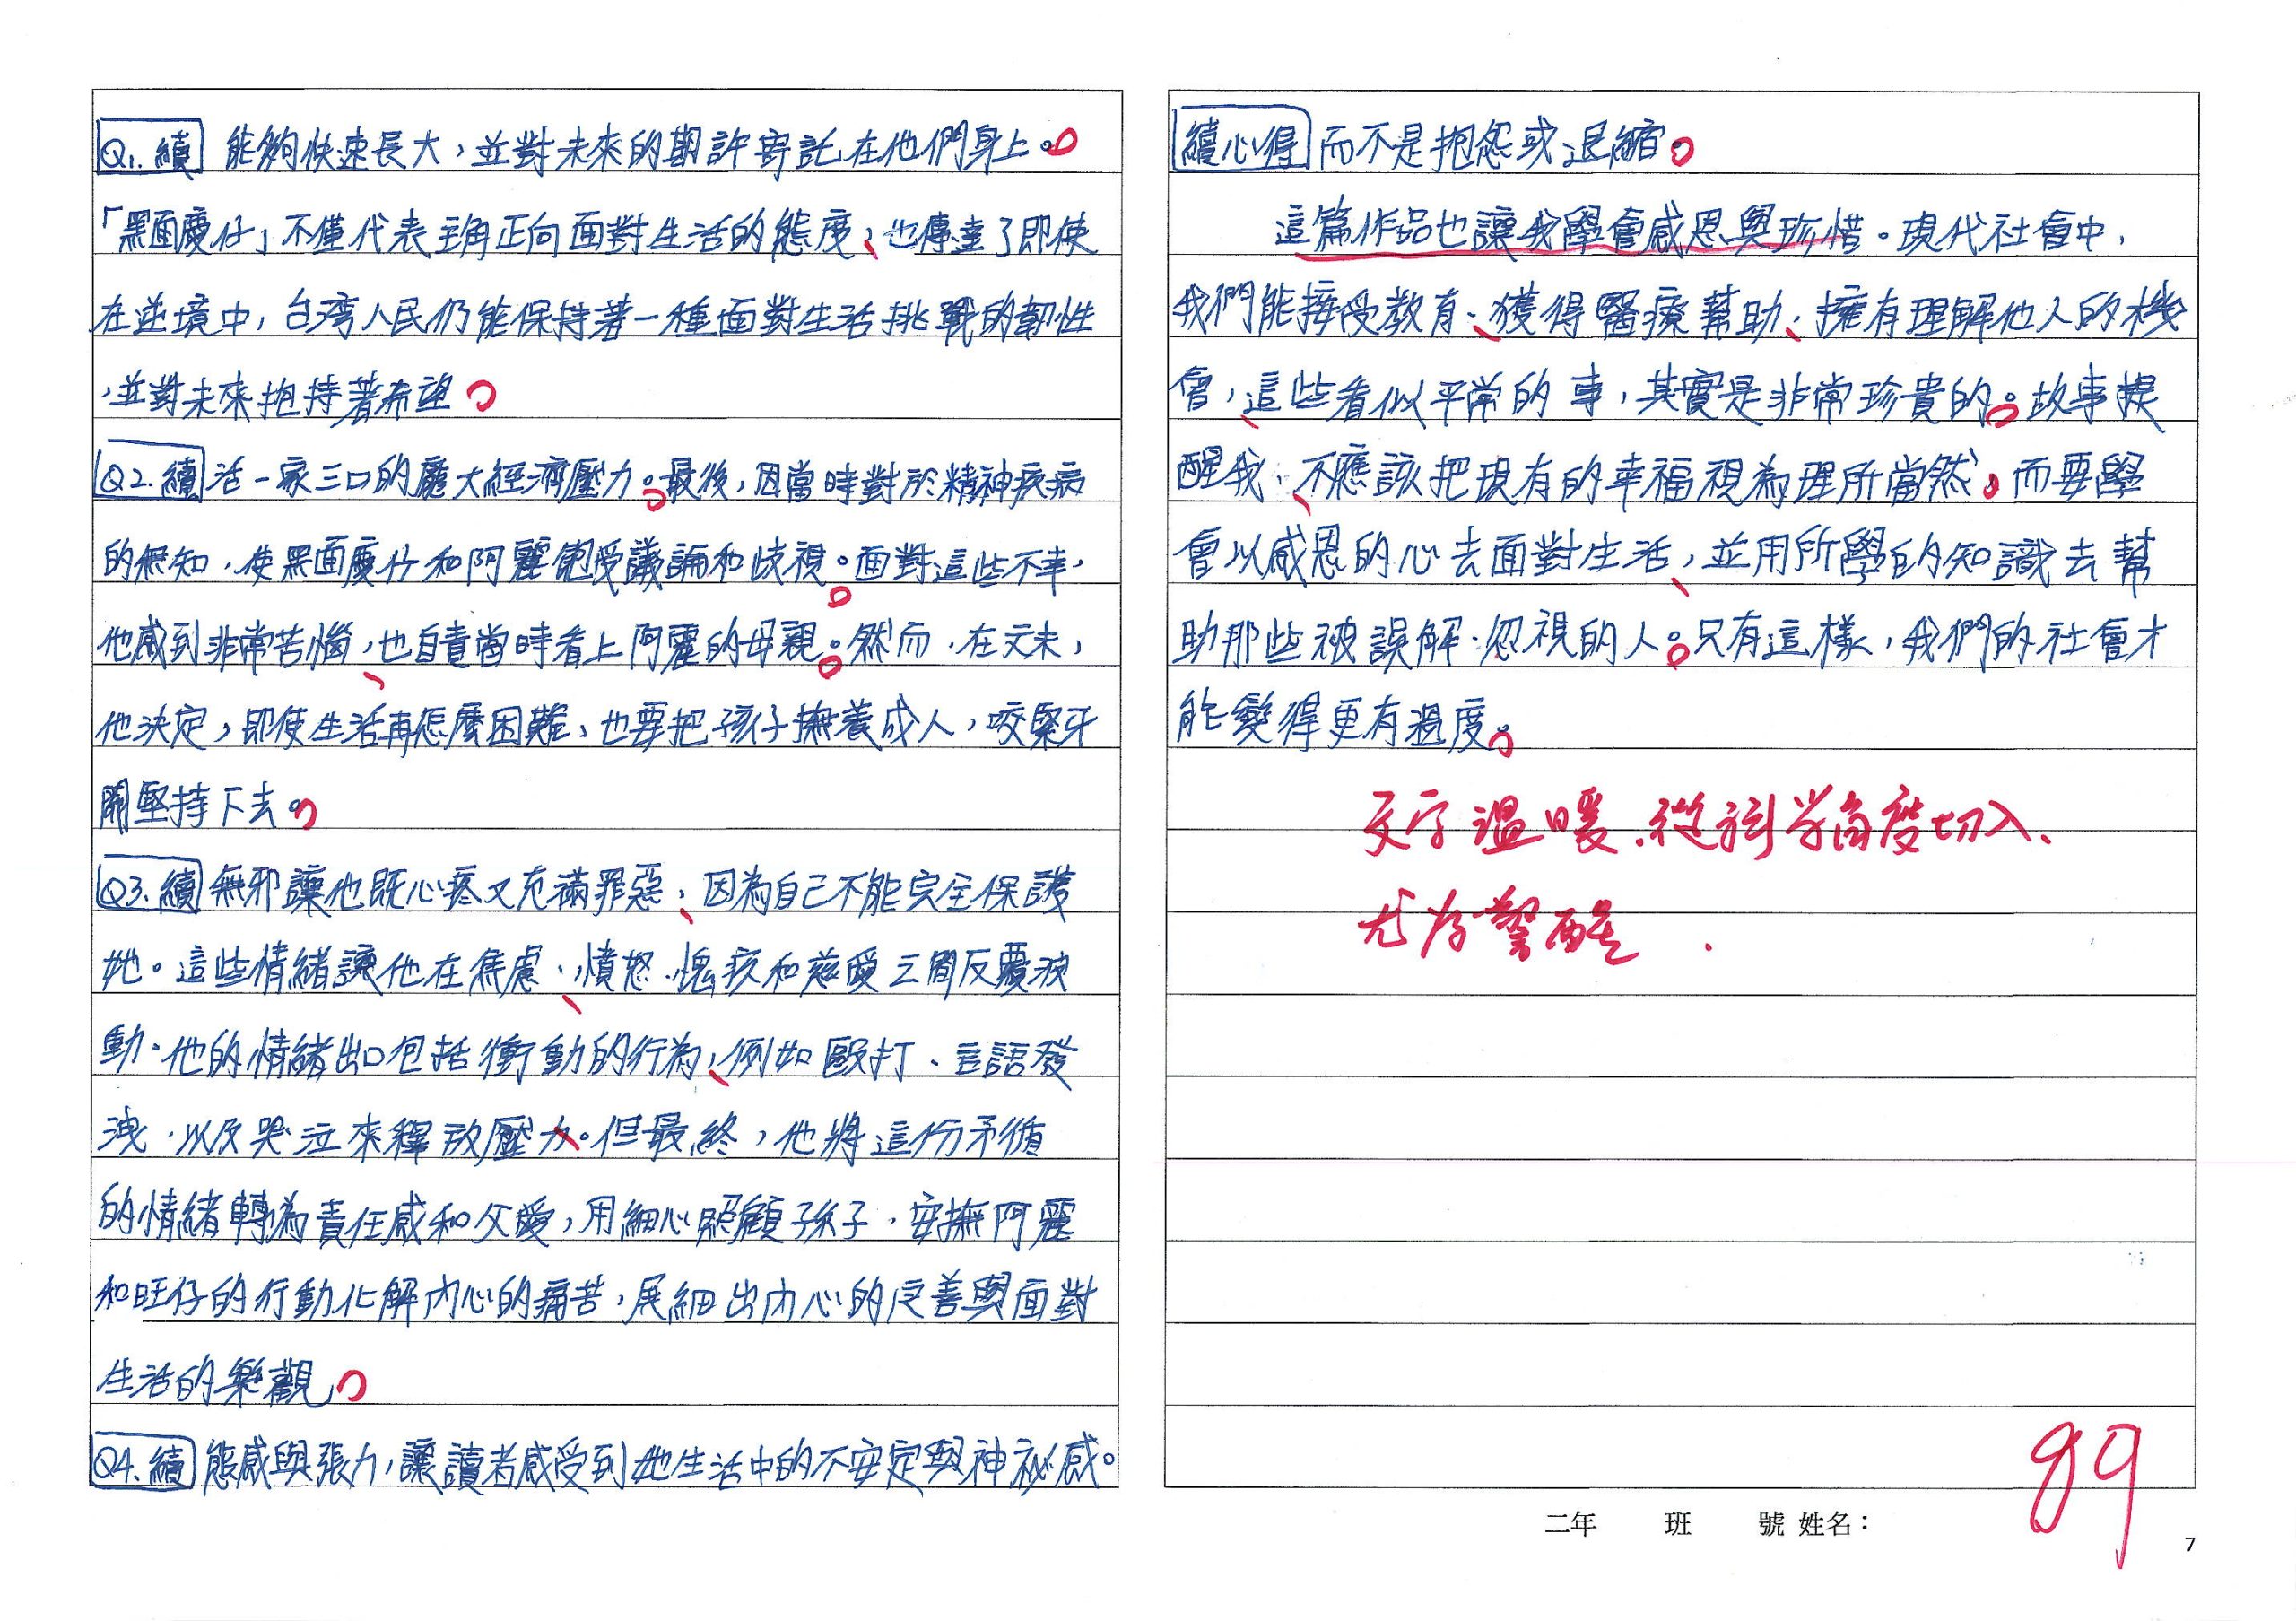 Q1.續 能夠快速長大，並對未來的期許寄託在他們身上。
「黑面慶仔」不僅代表主角正向面對生活的態度，也傳達了即使
在逆境中，台湾人民仍能保持著一種面對生活挑戰的韌性
，並對未來抱持著希望
Q2.續 活一家三口的龐大經濟壓力。最後，因當時對於精神疾病
的無知，使黑面慶仔和阿麗飽受議論和歧視。面對這些不幸，
他感到非常苦惱，也自責當時看上阿麗的母親。然而，在文末，
他決定，即使生活再怎麼困難，也要把孩子撫養成人，咬緊牙
關堅持下去。
Q3.續 無邪讓他既心疼又充滿罪惡，因為自己不能完全保護
她。這些情緒讓他在焦慮、憤怒、愧疚和慈愛之間反覆波
動。他的情緒出口包括衝動的行為，例如毆打、言語發
洩，以及哭泣來釋放壓力。但最終，他將這份矛循
的情緒轉為責任感和父愛，用細心照顧孫子，安撫阿麗
和旺仔的行動化解內心的痛苦，展細出內心的良善與面對
生活的樂觀
Q4.續 態感與張力，讓讀者感受到她生活中的不安定與神祕感。
續心得 而不是抱怨或退縮。
這篇作品也讓我學會感恩與珍惜。現代社會中，
我們能接受教育、獲得醫療幫助、擁有理解他人的機
會，這些看似平常的事，其實是非常珍貴的。故事提
醒我，不應該把現有的幸福視為理所當然，而要學
會以感恩的心去面對生活，並用所學的知識去幫
助那些被誤解、忽視的人。只有這樣，我們的社會才
能變得更有溫度。
文字溫暖．從科学角度切入．
尤為警醒．
89
二年 班 號 姓名：
7